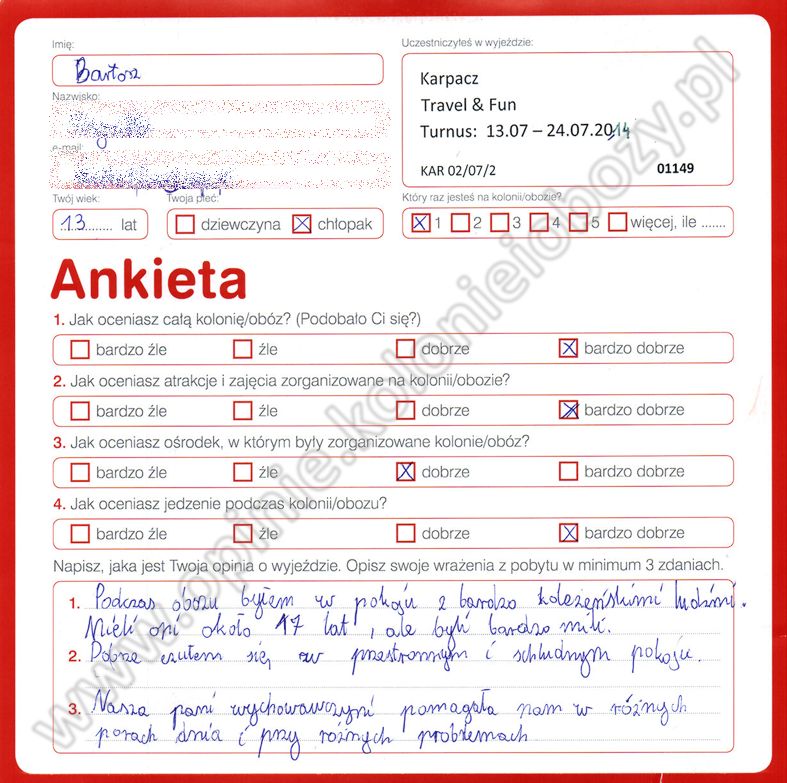 Imię:
Bartosz
Nazwisko:
e-mail:
Twój wiek:
13 lat
Twoja płeć:
dziewczyna chłopak
Uczestniczyłeś w wyjeździe:
Karpacz
Travel & Fun
Turnus: 13.07 – 24.07.2014
KAR 02/07/2 01149
Który raz jesteś na kolonii/obozie?
1 2 3 4 5 więcej, ile .......
Ankieta
1. Jak oceniasz całą kolonię/obóz? (Podobało Ci się?)
bardzo źle źle dobrze bardzo dobrze
2. Jak oceniasz atrakcje i zajęcia zorganizowane na kolonii/obozie?
bardzo źle źle dobrze bardzo dobrze
3. Jak oceniasz ośrodek, w którym były zorganizowane kolonie/obóz?
bardzo źle źle dobrze bardzo dobrze
4. Jak oceniasz jedzenie podczas kolonii/obozu?
bardzo źle źle dobrze bardzo dobrze
Napisz, jaka jest Twoja opinia o wyjeździe. Opisz swoje wrażenia z pobytu w minimum 3 zdaniach.
1. Podczas obozu byłem w pokoju z bardzo koleżeńskimi ludźmi.
Mieli oni około 17 lat, ale byli bardzo mili.
2. Dobrze czułem się w przestronnym i schludnym pokoju.
3. Nasza pani wychowawczyni pomagała nam w różnych
porach dnia i przy różnych problemach
www.opinie.kolonieiobozy.pl